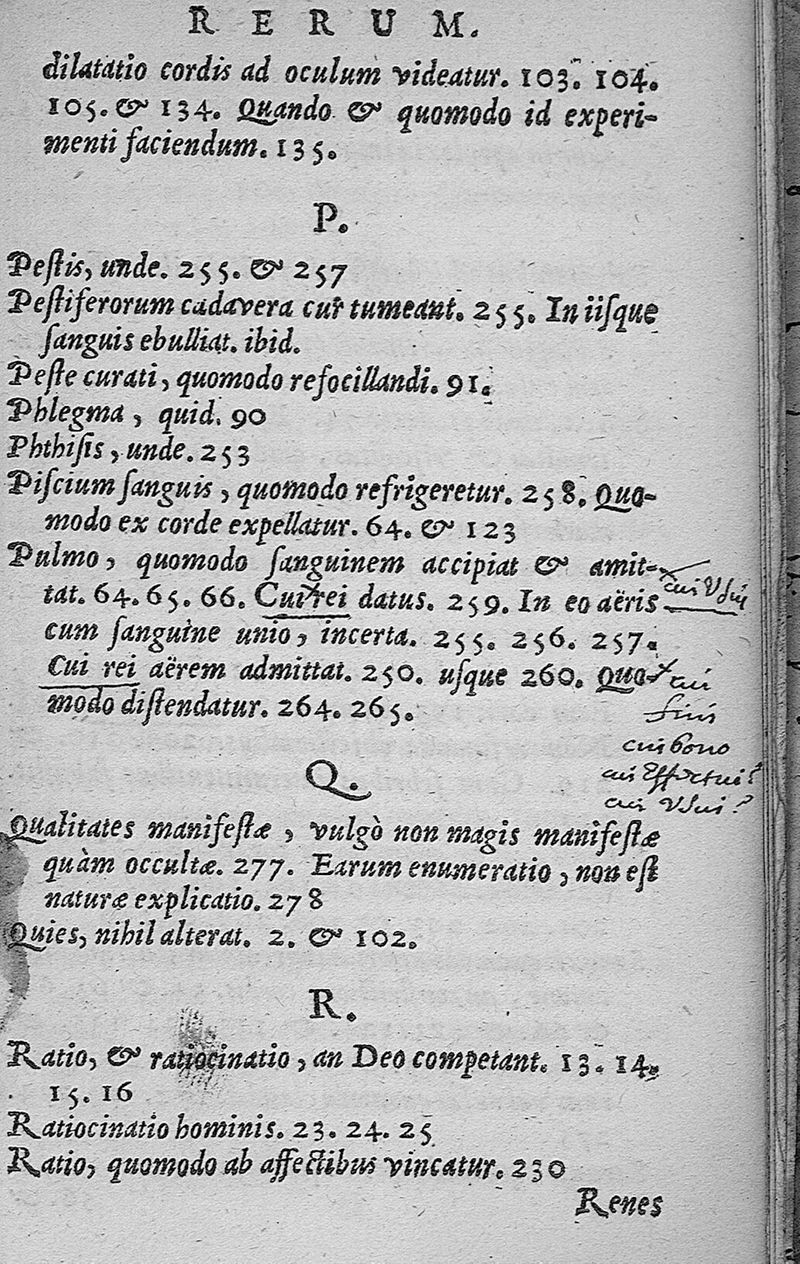 RERUM.
dilatatio cordis ad oculum videatur. 103. 104.
105. & 134. Quando & quomodo id experi-
menti faciendum. 135.
P.
Peſtis, unde. 255. & 257
Peſtiferorum cadavera cur tumeant. 255. In iiſque
ſanguis ebulliat. ibid.
Peſte curati, quomodo refocillandi. 91.
Phlegma, quid. 90
Phthiſis, unde. 253
Piſcium ſanguis, quomodo refrigeretur. 258. Quo-
modo ex corde expellatur. 64. & 123
Pulmo, quomodo ſanguinem accipiat & amit-
tat. 64. 65. 66. Cui rei datus. 259. In eo aëris
cui Usui
cum ſanguine unio, incerta. 255. 256. 257.
Cui rei aërem admittat. 250. uſque 260. Quo-
modo diſtendatur. 264. 265.
cui
fini
cui bono
cui Effectui?
cui Usui?
Q.
Qualitates manifeſtæ, vulgò non magis manifeſtæ
quàm occultæ. 277. Earum enumeratio, non eſt
naturæ explicatio. 278
Quies, nihil alterat. 2. & 102.
R.
Ratio, & ratiocinatio, an Deo competant. 13. 14.
15. 16
Ratiocinatio hominis. 23. 24. 25
Ratio, quomodo ab affectibus vincatur. 230
Renes